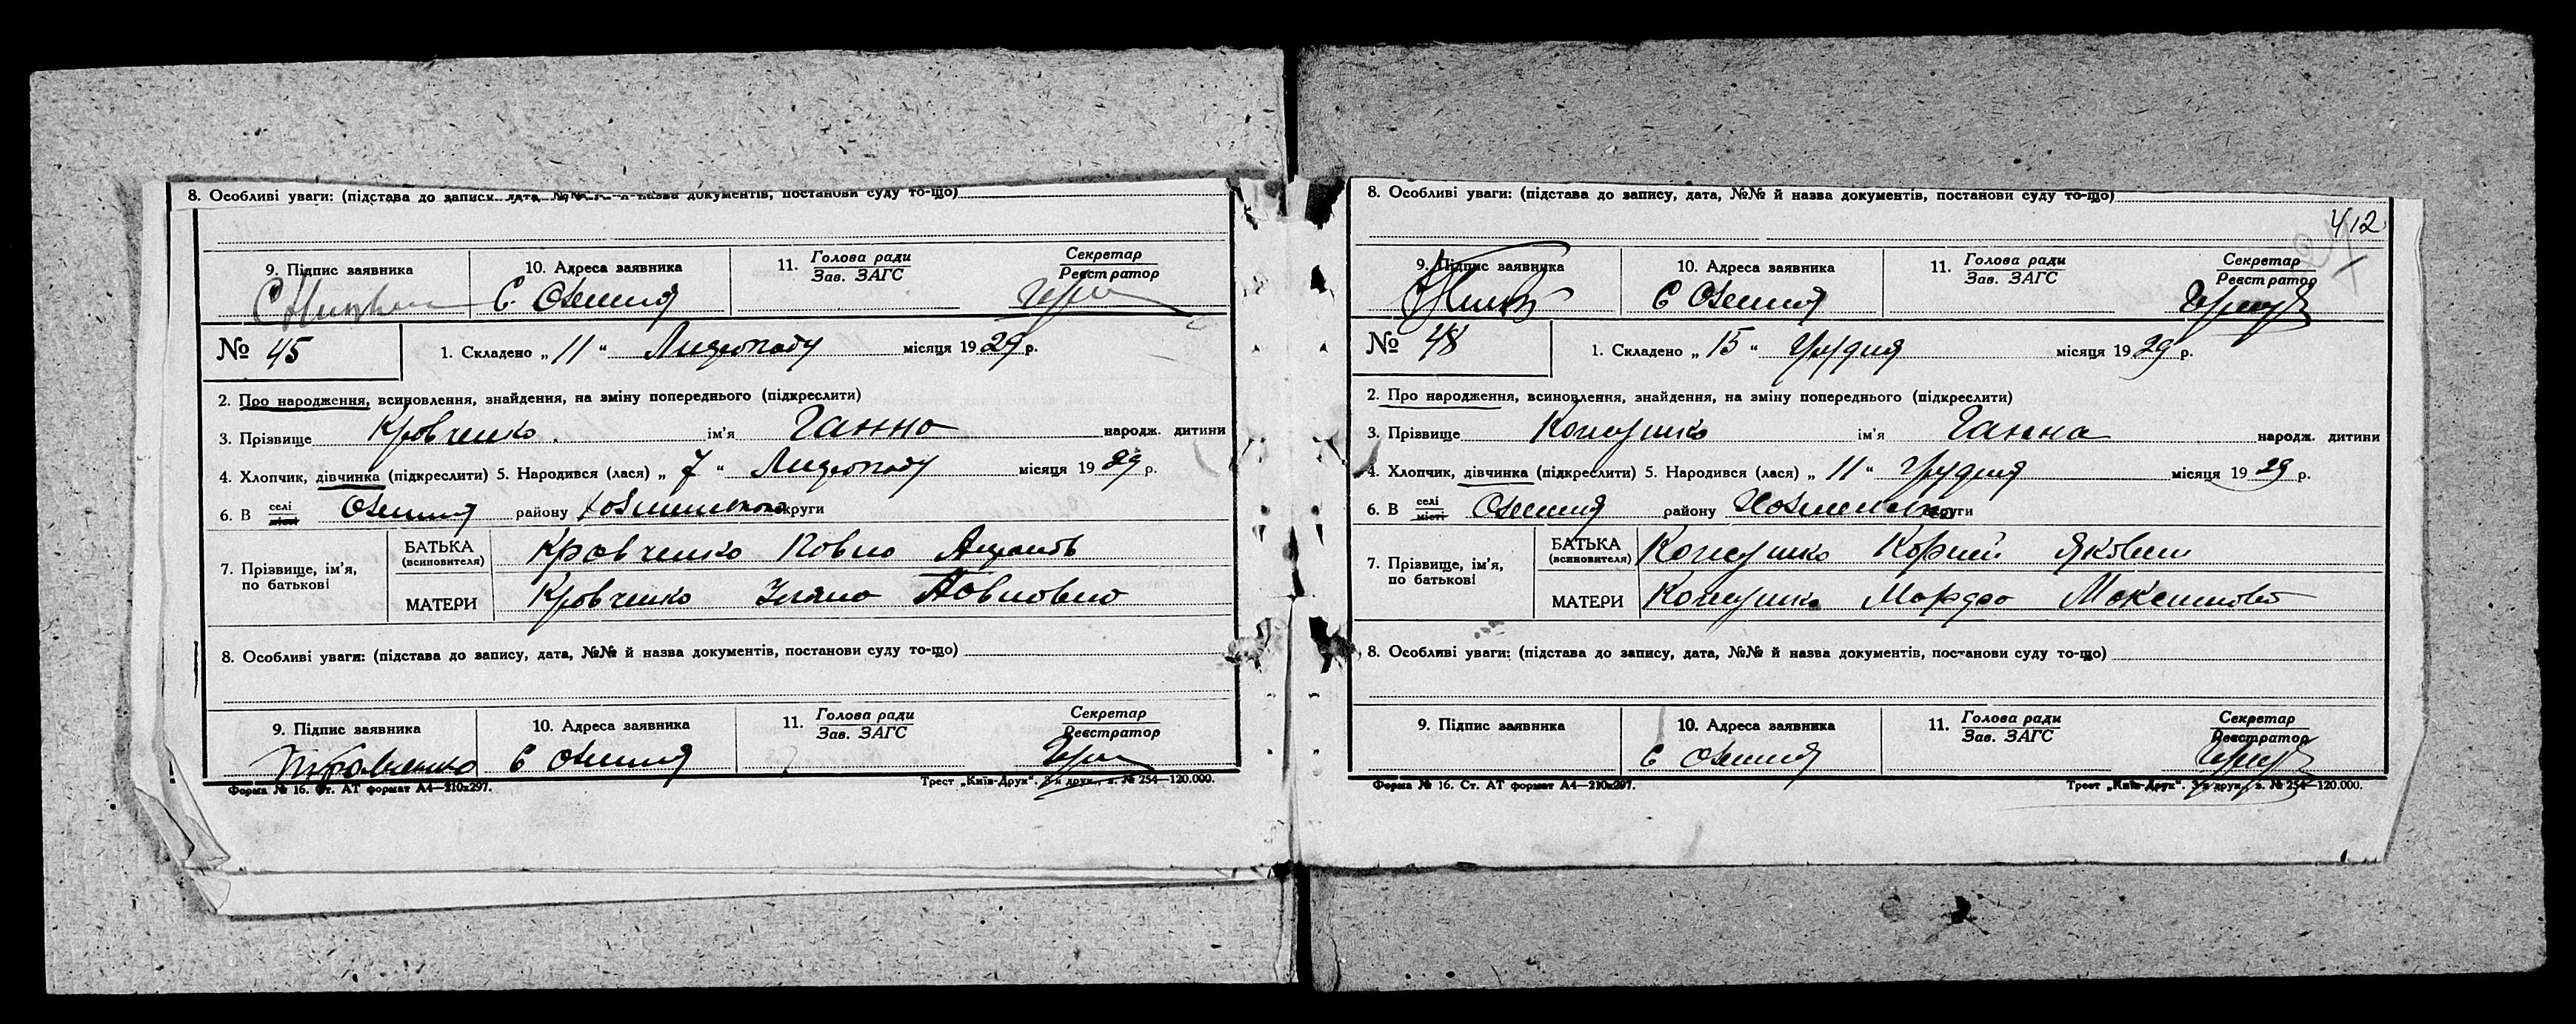 8. Особливі уваги: (підстава до записи, дата, №№ й назва документів, постанови суду то-що)
9. Підпис заявника
10. Адреса заявника
11. Голова ради
Зав. ЗАГС
Секретар
Реєстратор
С.
№ 45
1. Складено „ 11 “ Листопаду місяця 1929 р.
2. Про народження, всиновлення, знайдення, на зміну попереднього (підкреслити)
3. Прізвище Кровченко ім'я Ганна народж. дитини
4. Хлопчик, дівчинка (підкреслити) 5. Народився (лася) „ 7 “ Листопаду місяця 1929 р.
6. В селі
місті
району округи
7. Прізвище, ім'я, по батькові
БАТЬКА (всиновителя) Кровченко Повло
МАТЕРИ Кровченко Уляно Повловно
8. Особливі уваги: (підстава до запису, дата, №№ й назва документів, постанови суду то-що)
9. Підпис заявника
10. Адреса заявника
11. Голова ради
Зав. ЗАГС
Секретар
Реєстратор
С
Форма № 16. Ст. АТ формат А4—210х297.
Трест „Київ-Друк“. 3-я друк., з. № 254—120.000.
8. Особливі уваги: (підстава до запису, дата, №№ й назва документів, постанови суду то-що)
412
9. Підпис заявника
10. Адреса заявника
11. Голова ради
Зав. ЗАГС
Секретар
Реєстратор
С
№ 48
1. Складено „ 15 “ Грудня місяця 1929 р.
2. Про народження, всиновлення, знайдення, на зміну попереднього (підкреслити)
3. Прізвище ім'я Ганна народж. дитини
4. Хлопчик, дівчинка (підкреслити) 5. Народився (лася) „ 11 “ Грудня місяця 1929 р.
6. В селі
місті
району округи
7. Прізвище, ім'я, по батькові
БАТЬКА (всиновителя) Корній Якович
МАТЕРИ Моксимовно
8. Особливі уваги: (підстава до запису, дата, №№ й назва документів, постанови суду то-що)
9. Підпис заявника
10. Адреса заявника
11. Голова ради
Зав. ЗАГС
Секретар
Реєстратор
С
Форма № 16. Ст. АТ формат А4—210х297.
Трест „Київ-Друк“. 3-я друк., з. № 254—120.000.